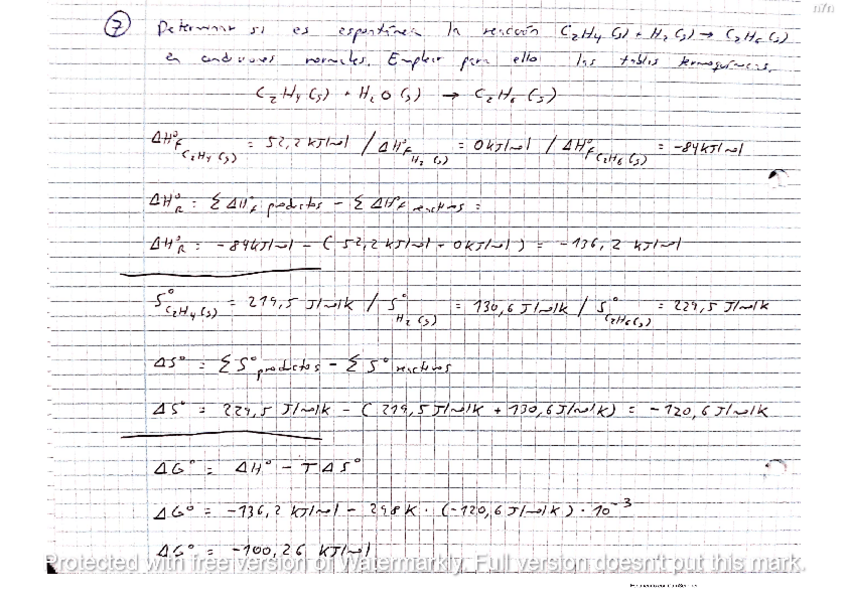 7 Determinar si es espontánea la reacción C2H4(g) + H2(g) → C2H6(g)
en condiciones normales. Emplear para ello las tablas termoquímicas.
C2H4(g) + H2O(g) → C2H6(g)
ΔH°f C2H4(g) = 52,2 kJ/mol / ΔH°f H2(g) = 0 kJ/mol / ΔH°f C2H6(g) = -84 kJ/mol
ΔH°R = Σ ΔH°f productos - Σ ΔH°f reactivos =
ΔH°R = -84 kJ/mol - (52,2 kJ/mol + 0 kJ/mol) = -136,2 kJ/mol
S° C2H4(g) = 219,5 J/molK / S° H2(g) = 130,6 J/molK / S° C2H6(g) = 229,5 J/molK
ΔS° = Σ S° productos - Σ S° reactivos
ΔS° = 229,5 J/molK - (219,5 J/molK + 130,6 J/molK) = -120,6 J/molK
ΔG° = ΔH° - TΔS°
ΔG° = -136,2 kJ/mol - 298K · (-120,6 J/molK) · 10⁻³
ΔG° = -100,26 kJ/mol
Protected with free version of Watermarkly. Full version doesn't put this mark.